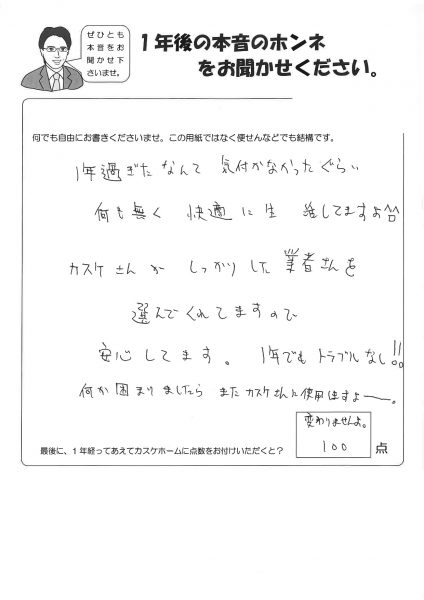 ぜひとも
本音をお
聞かせ下
さいませ。
1年後の本音のホンネ
をお聞かせください。
何でも自由にお書きくださいませ。この用紙ではなく便せんなどでも結構です。
1年過ぎたなんて 気付かなかったぐらい
何も無く 快適に生活してますよ^^
カスケさんが しっかりした業者さんを
選んでくれてますので
安心してます。 1年でもトラブルなし!!
何か困まりましたら またカスケさんに使用ますよー。
変わりませんよ。
最後に、1年経ってあえてカスケホームに点数をお付けいただくと?
100
点